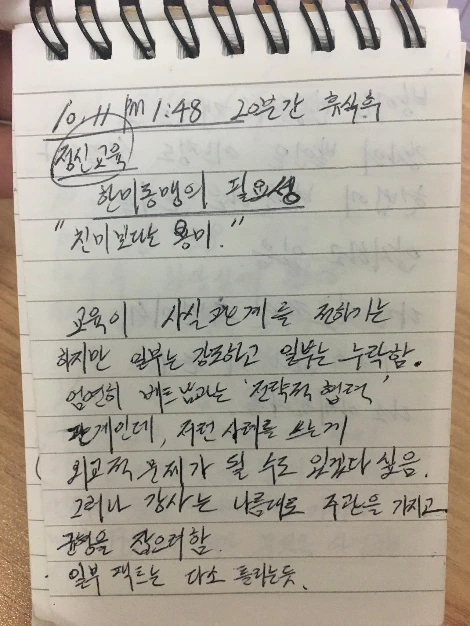 10.11 PM 1:48 20분간 휴식후
정신교육
한미동맹의 필요성
"친미보다는 용미."
교육이 사실관계를 전하기는
하지만 일부는 강조하고 일부는 누락함.
엄연히 베트남과는 '전략적 협력'
관계인데, 저런 사례를 쓰는게
외교적 문제가 될 수도 있겠다 싶음.
그러나 강사는 나름대로 주관을 가지고
균형을 잡으려함.
일부 팩트는 다소 틀리는듯.